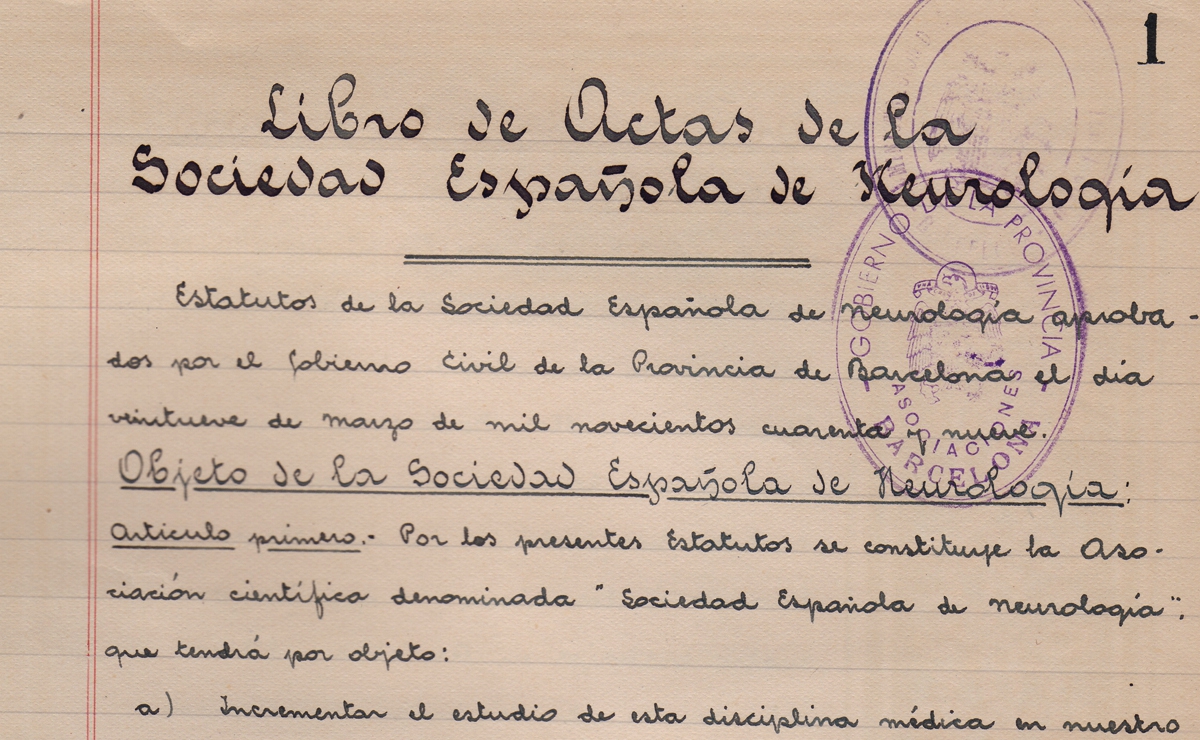 1
Libro de Actas de la
Sociedad Española de Neurología
Estatutos de la Sociedad Española de Neurología aproba-
dos por el Gobierno Civil de la Provincia de Barcelona el día
veintueve de marzo de mil novecientos cuarenta y nueve.
Objeto de la Sociedad Española de Neurología:
Artículo primero.- Por los presentes Estatutos se constituye la Aso-
ciación científica denominada "Sociedad Española de Neurología".
que tendrá por objeto:
a) Incrementar el estudio de esta disciplina médica en nuestro
GOBIERNO DE LA PROVINCIA
ASOCIACIONES
BARCELONA